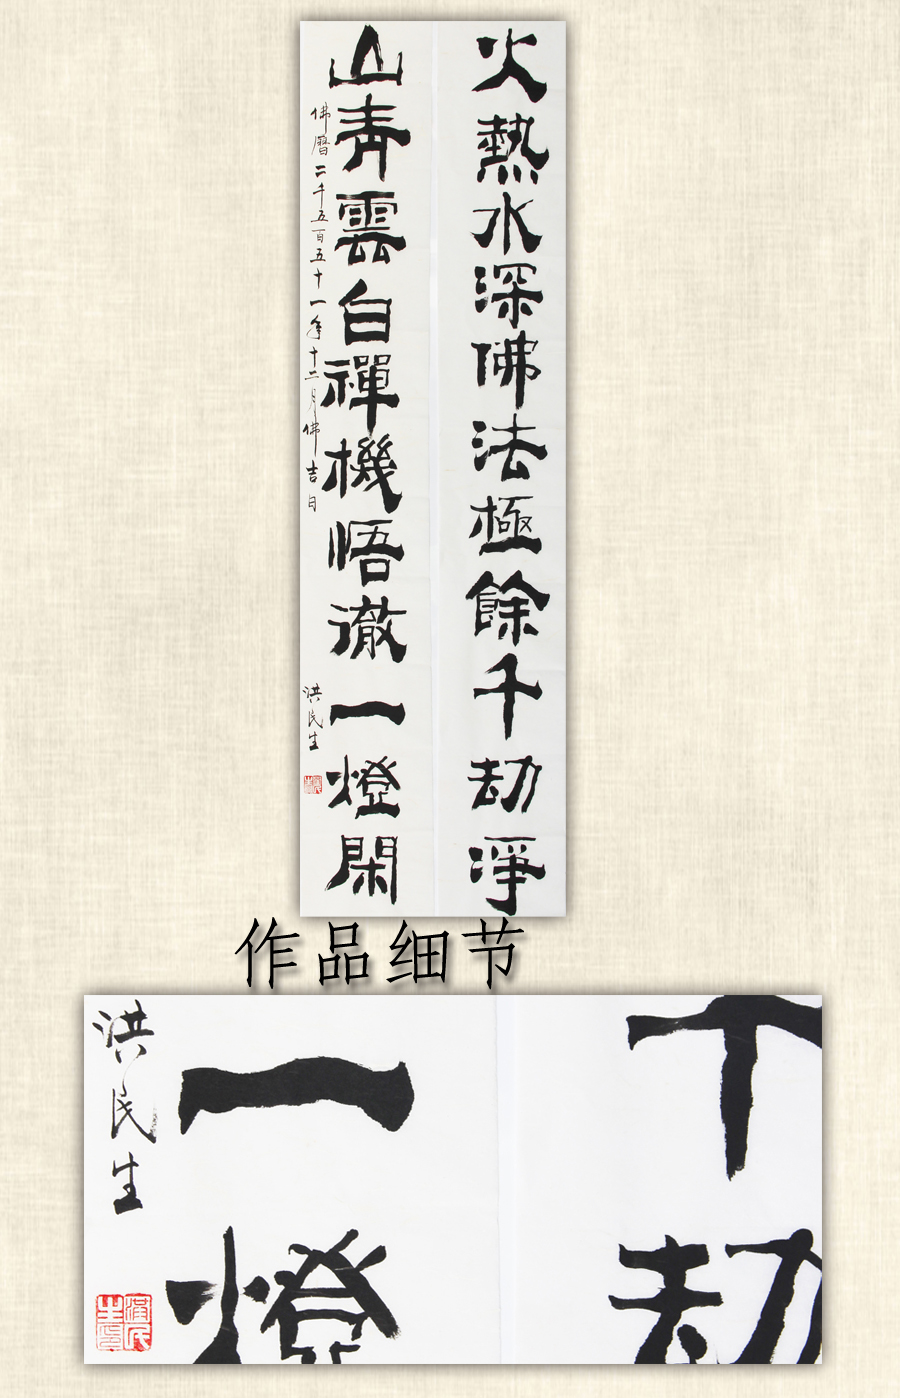 火熱水深佛法極餘千劫淨
山青雲白禪機悟徹一燈閑
佛曆二千五百五十一年十二月佛吉日
洪民生
作品细节
千劫
一燈
洪民生